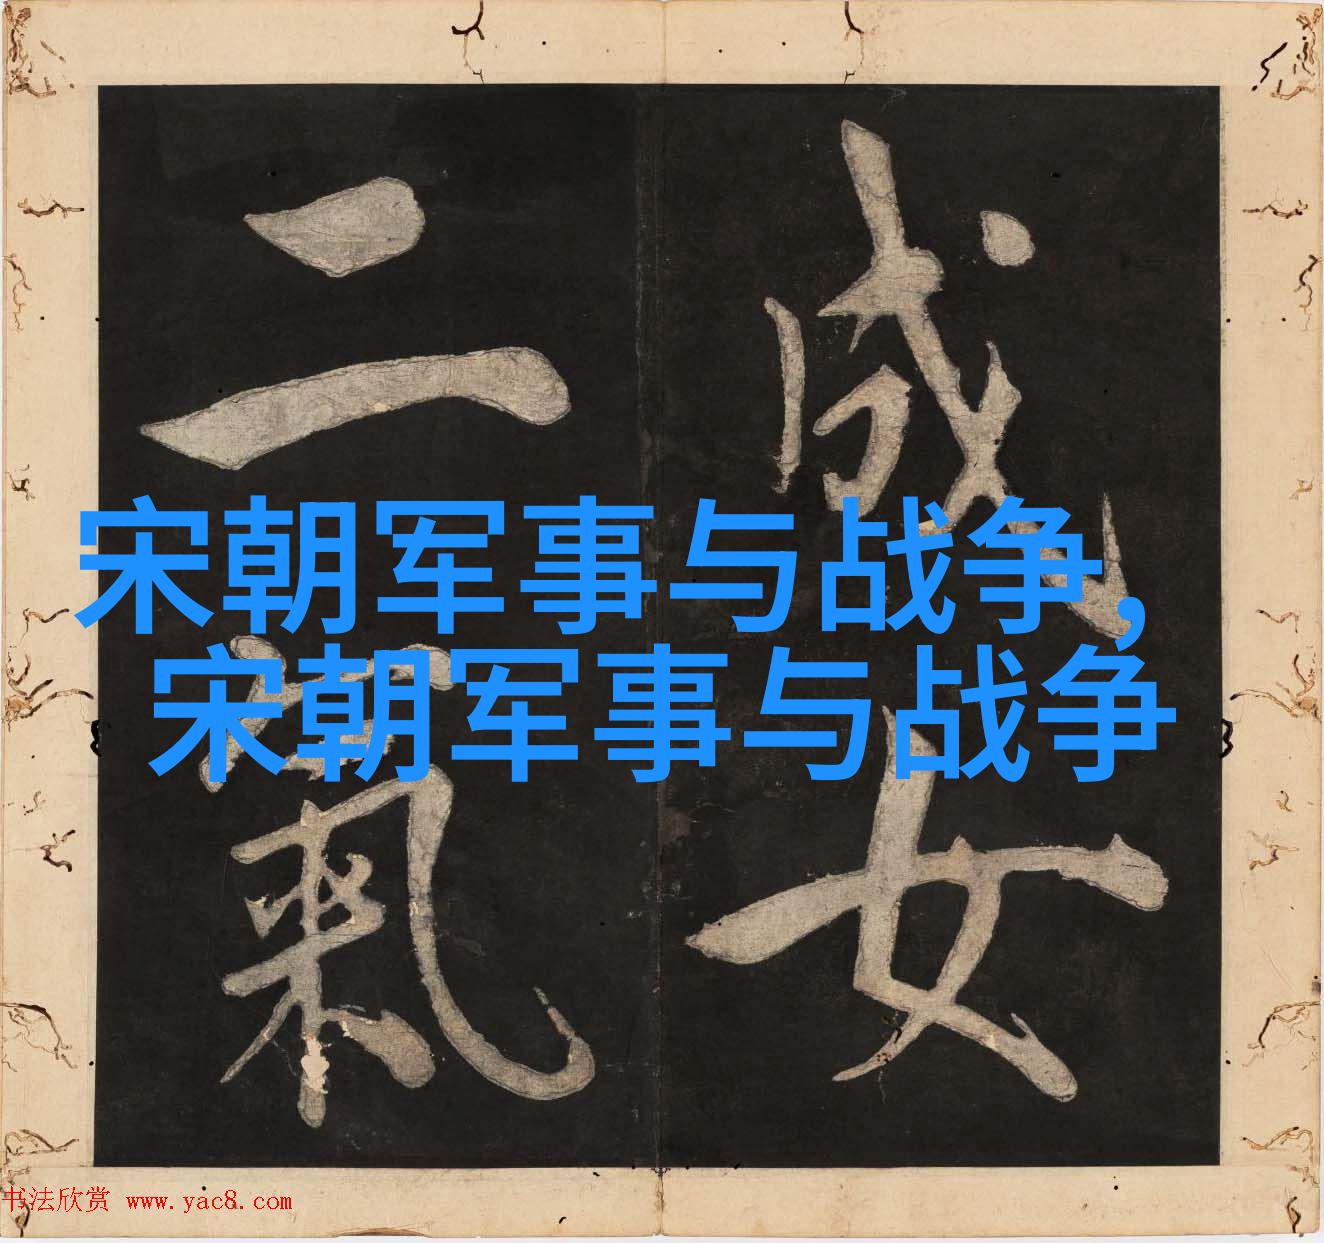 成女
二氣
宋朝军事与战争,
宋朝军事与战争
书法欣赏 www.yac8.com